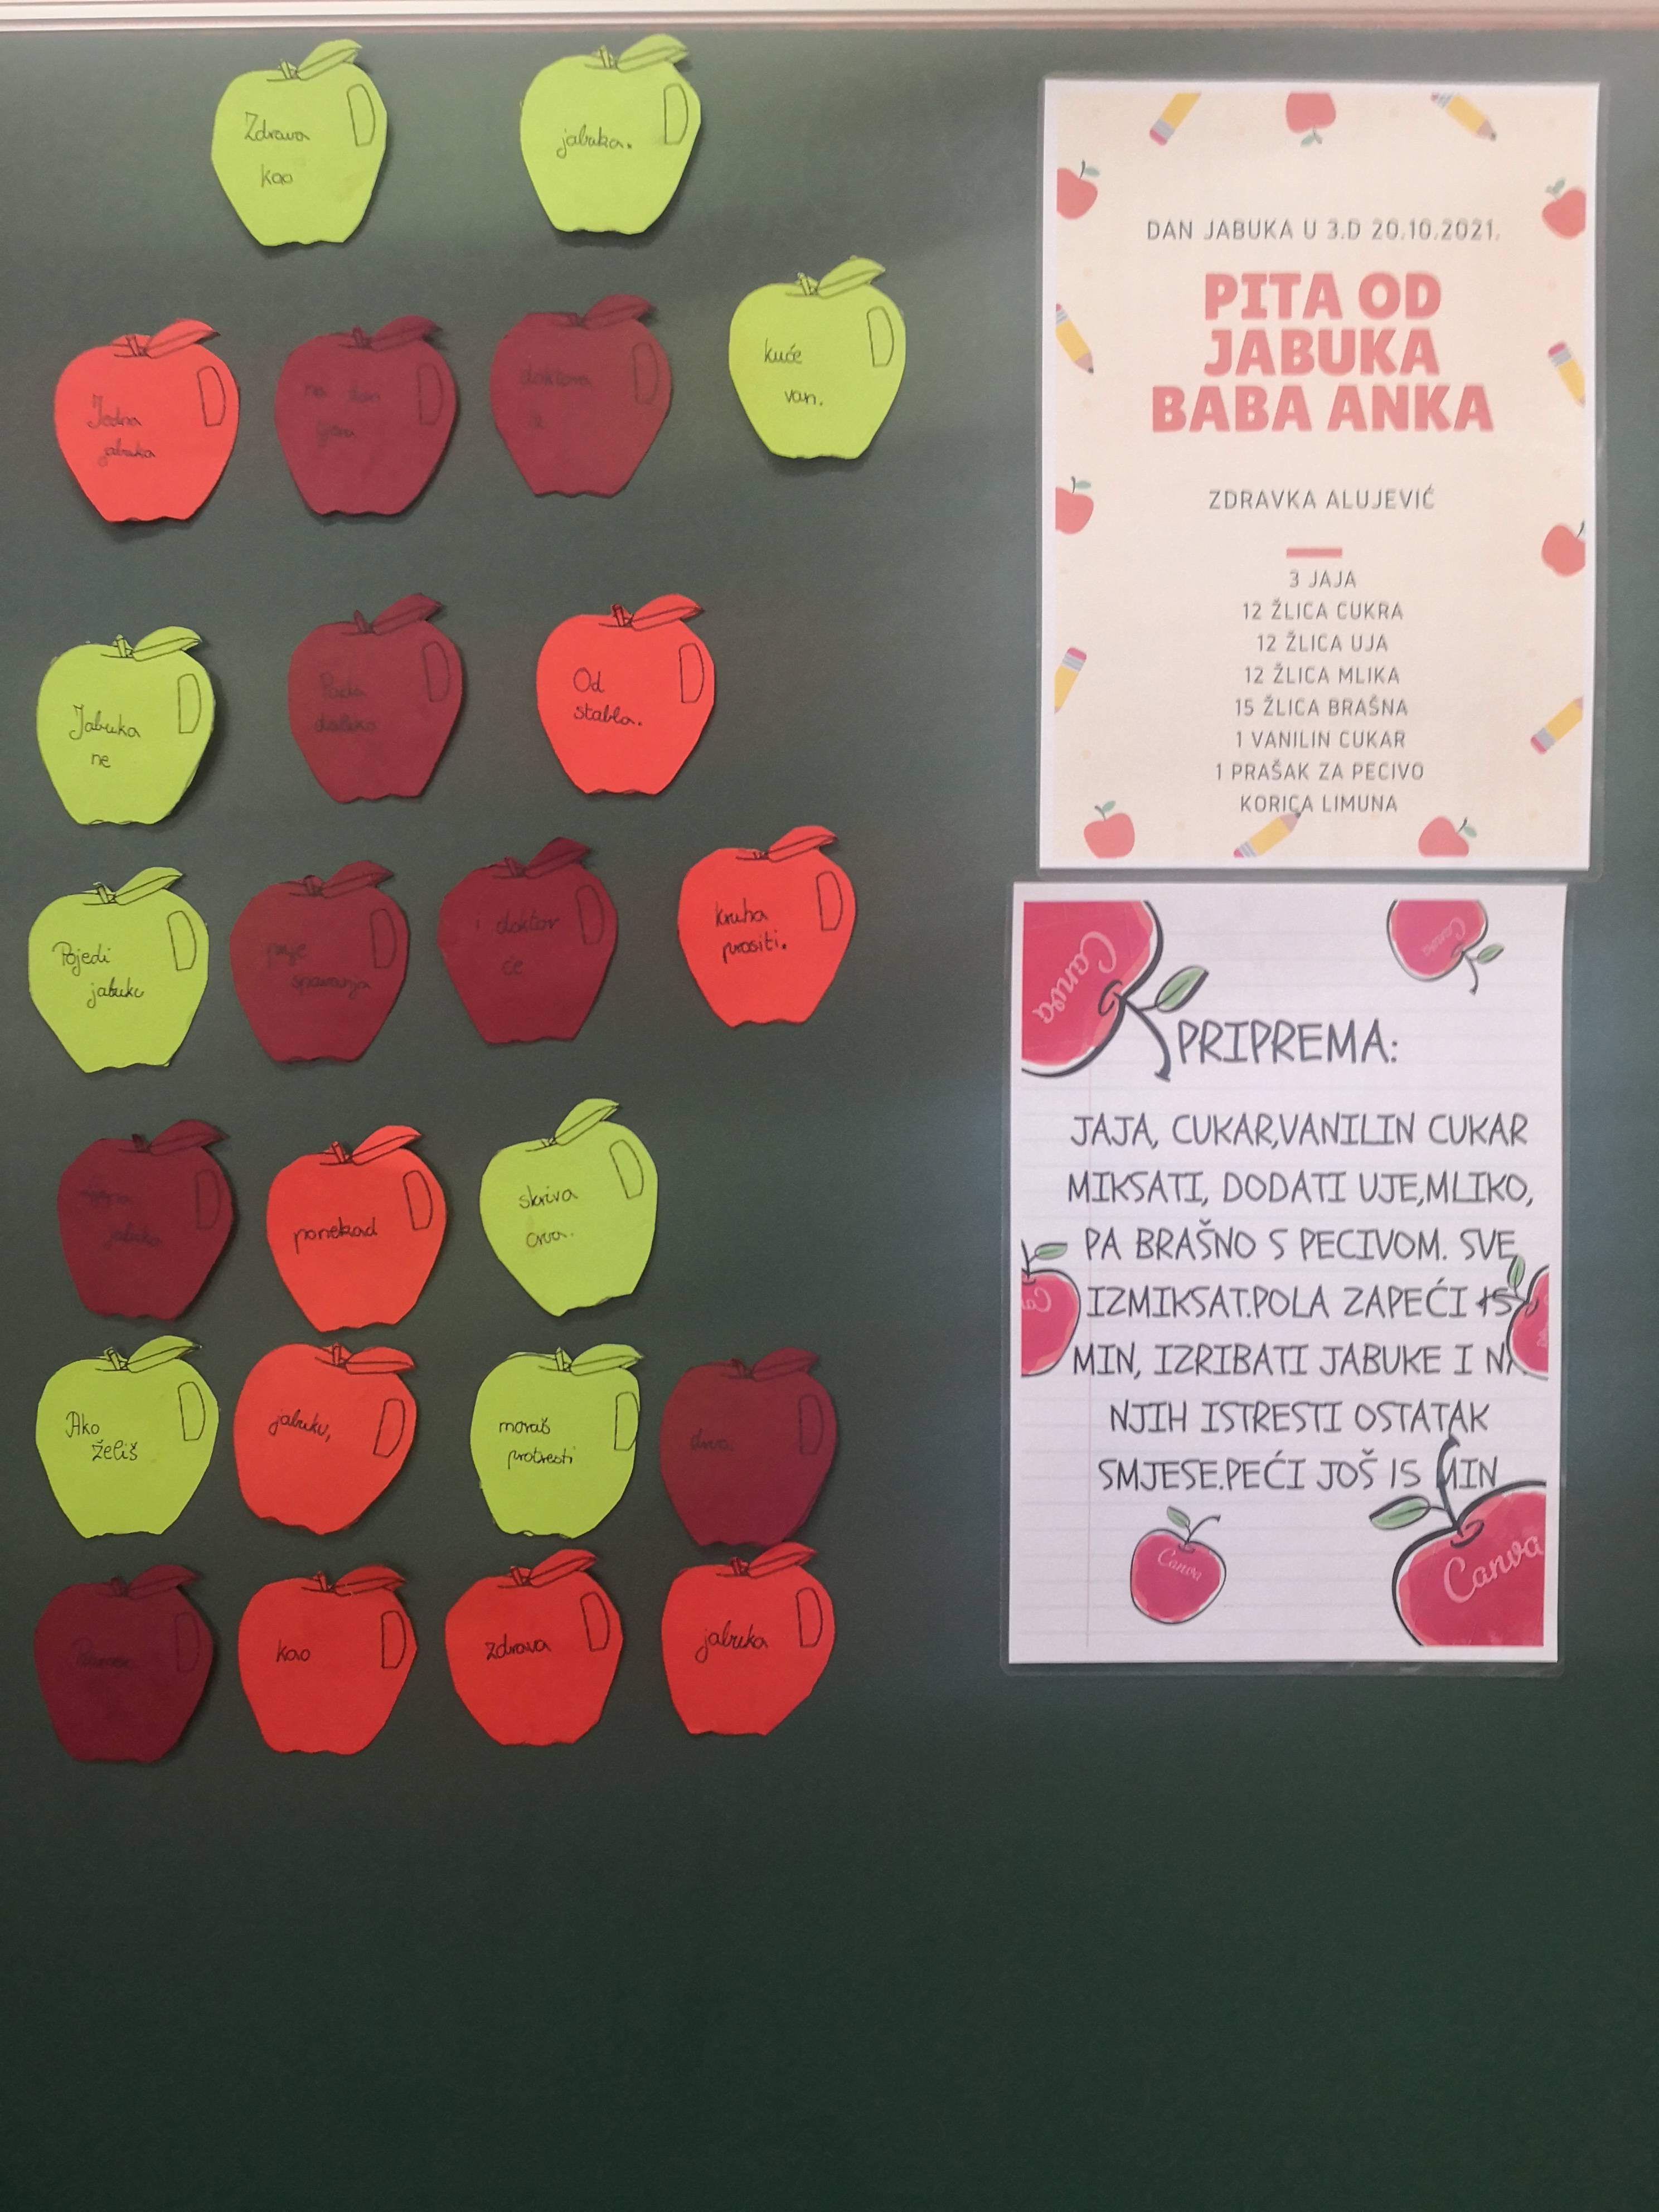 Zdrava
kao
jabuka.
Jedna
jabuka
na dan
tjera
doktora
iz
kuće
van.
Jabuka
ne
Pada
daleko
Od
stabla.
Pojedi
jabuku
prije
spavanja
i doktor
će
kruha
prositi.
jabuka
ponekad
skriva
crva.
Ako
želiš
jabuku,
moraš
protresti
drvo.
kao
zdrava
jabuka
DAN JABUKA U 3.D 20.10.2021.
PITA OD
JABUKA
BABA ANKA
ZDRAVKA ALUJEVIĆ
3 JAJA
12 ŽLICA CUKRA
12 ŽLICA UJA
12 ŽLICA MLIKA
15 ŽLICA BRAŠNA
1 VANILIN CUKAR
1 PRAŠAK ZA PECIVO
KORICA LIMUNA
Canva
Canva
PRIPREMA:
JAJA, CUKAR,VANILIN CUKAR
MIKSATI, DODATI UJE,MLIKO,
PA BRAŠNO S PECIVOM. SVE
IZMIKSAT.POLA ZAPEĆI 15
MIN, IZRIBATI JABUKE I NA
NJIH ISTRESTI OSTATAK
SMJESE.PEĆI JOŠ 15 MIN
Canva
Canva